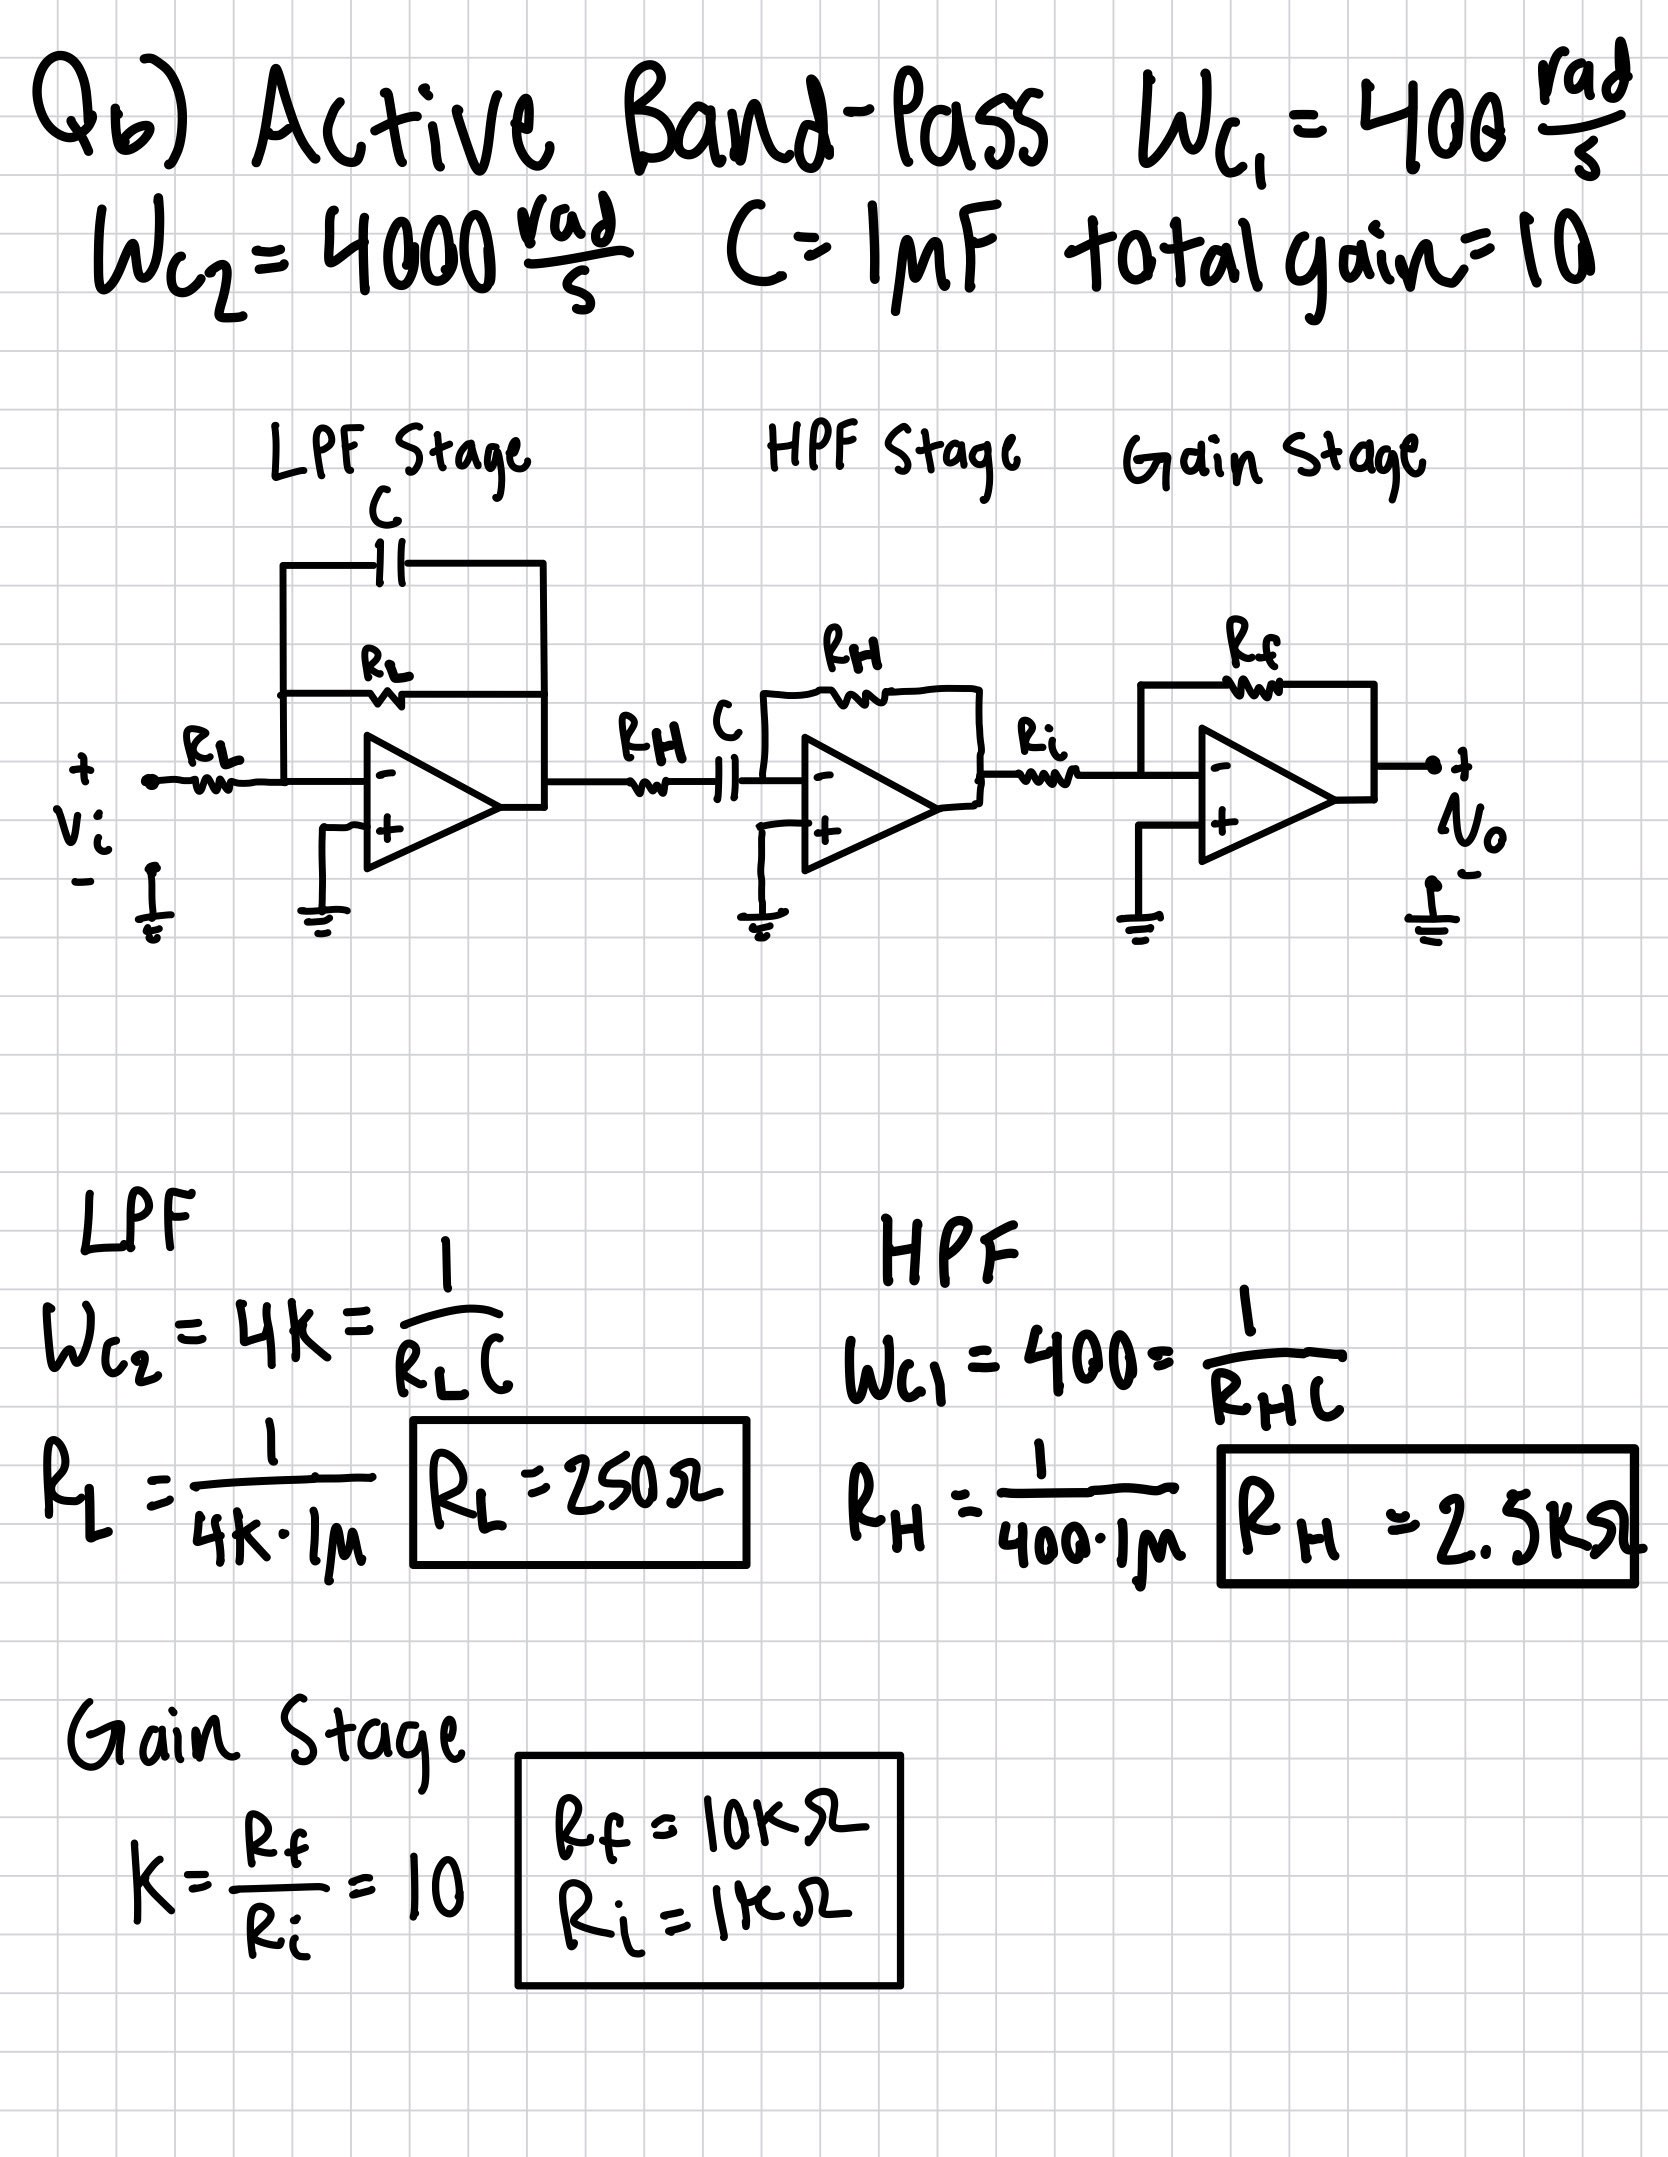 Q6) Active Band-Pass Wc1 = 400 rad/s
Wc2 = 4000 rad/s C = 1μF total gain = 10
LPF Stage HPF Stage Gain Stage
C
RL RH Rf
RL RH C Ri
+ - - - +
Vi + + + Vo
- -
LPF HPF
Wc2 = 4K = 1/RLC Wc1 = 400 = 1/RHC
RL = 1/4K·1μ RL = 250Ω RH = 1/400·1μ RH = 2.5KΩ
Gain Stage
K = Rf/Ri = 10 Rf = 10KΩ
Ri = 1KΩ